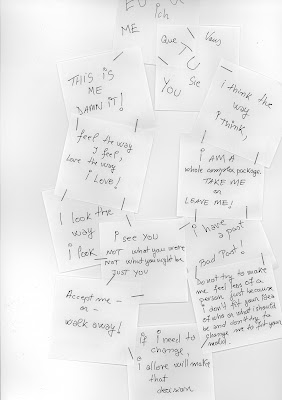 Ich
ME
Que
Vous
TU
YOU
Sie
THIS IS
ME
DAMN IT!
i think the
way
i think,
i feel the way
I feel,
Love the way
i LOVE!
i AM A
whole complex package.
TAKE ME
OR
LEAVE ME!
I look the
way
i look
i see YOU
NOT what you were
NOT what you might be
JUST YOU
i have
a past
Bad Past!
Accept me -
or -
walk away!
Do not try to make
me feel less of a
person just because
i don't fit your idea
of who or what i should
be and don't try to
change me to fit your
mold.
if i need to
change,
i alone will make
that
decision